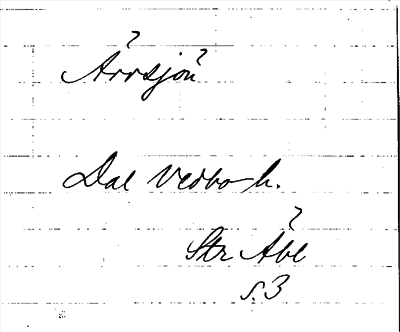 Ärrsjön
Dal Vedbo h.
Str Äbl
s. 3